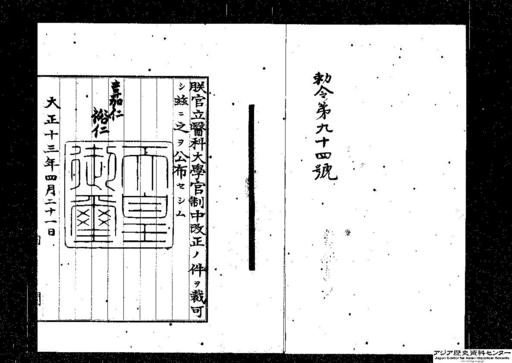 勅令第九十四號
朕官立醫科大學官制中改正ノ件ヲ裁可
シ玆ニ之ヲ公布セシム
嘉仁
裕仁
天皇
御璽
大正十三年四月二十一日
アジア歴史資料センター
Japan Center for Asian Historical Records